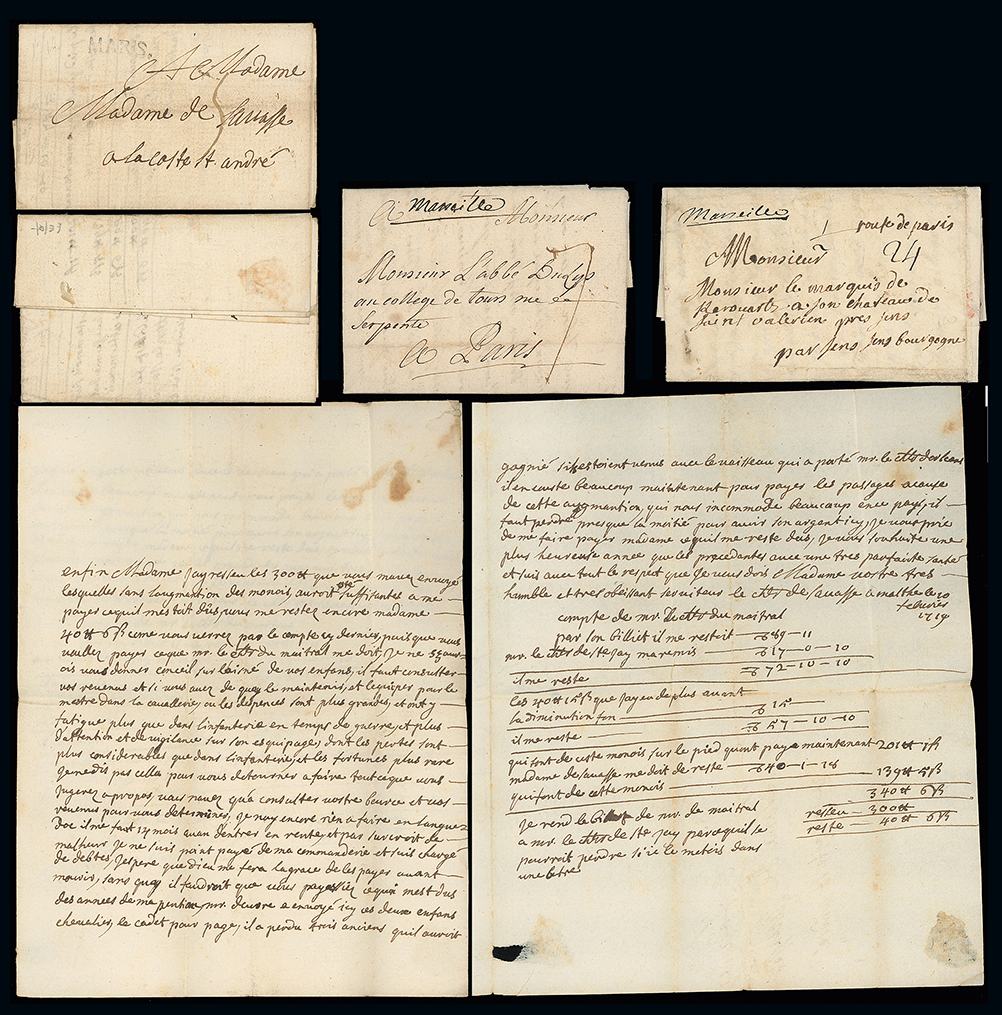 MARIS.
A Madame
Madame de Sauasse
a la coste st. andré
5
A Marseille Monsieur
Monsieur L'abbé
au college de tours rue
Serpente
A Paris
7
Marseille
1 route de paris
A Monsieur 24
Monsieur le marquis de
a son chateau de
saint valerien pres sens
par sens sens bourgogne
enfin Madame jay resseu les 300 tt que vous mavez envoyé
lesquelles sans laugmantion des monois, auroit pte suffisantes a me
payes ce quil mestoit düs, vous me restez encore madame
40 tt 6 ß come vous verrez par le compte cy dernier, puis que vous
voullez payes ce que mr. le du maitral me doit, je ne
ois vous donner conseil sur laisné de vos enfans, il faut consulter
vos revenus et si vous avez de quoy le maintenir, et lequiper pour le
mestre dans la cavallerie, ou les despences sont plus grandes, et ont y
fatigue plus que dans linfanterie en temps de guerre, et plus
d'attention et de vigilance sur son esquipage, dont les pertes sont
plus considerables que dans linfanterie, et les fortunes plus rare
je ne dis pas cella pour vous detourner a faire tout ce que vous
jugerez a propos, vous navez qua consulter vostre bource et vos
revenus pour vous determiner, je nay encore rien a faire en langue
doc il me faut 14 mois quan dentrer en rente, et pas surcroit de
malheur je ne suis point payé de ma commanderie et suis chargé
de debtes, jespere que dieu me fera la grace de les payes auant
mourir, sans quoy il faudroit que vous payassiez ce qui mest dus
des années de ma pention, mr. a envoyé icy ces deux enfans
chevalier, le cadet pour page, il a perdu trois anciens quil auroit
gagnié sils estoient venus avec le vaisseau qui a porté mr. le dorleans
il en couste beaucoup maintenant pour payer les passages a cause
de cette augmantion, qui nous incommode beaucoup en ce pays, il
faut perdre presque la moitié pour avoir son argent icy, je vous prie
de me faire payer madame ce quil me reste dus, je vous souhaite une
plus heureuse année que les precedantes avec une tres parfaite santé
et suis avec tout le respect que je vous dois Madame vostre tres
humble et tres obeissant serviteur le de sauasse a malthe le 20
febvrier
1719
compte de mr. le du maitral
par son billiet il me restoit — 89 — 11
mr. le de ste jay ma remis — 17 — 0 — 10
il me reste — 72 — 10 — 10
les 40 tt 15 ß que jay eu de plus auant
la diminution fon — 15
il me reste — 57 — 10 — 10
qui font de cette monois sur le pied quont paye maintenant 201 tt 1 ß
madame de sauasse me doit de reste — 40 — 1 — 18
qui font de cette monois — 139 tt 5 ß
340 tt 6 ß
resseu 300 tt
reste 40 tt 6 ß
je rend le de mr. de maitral
a mr. le de ste jay parce quil se
pourroit perdre si ie le metois dans
une letre